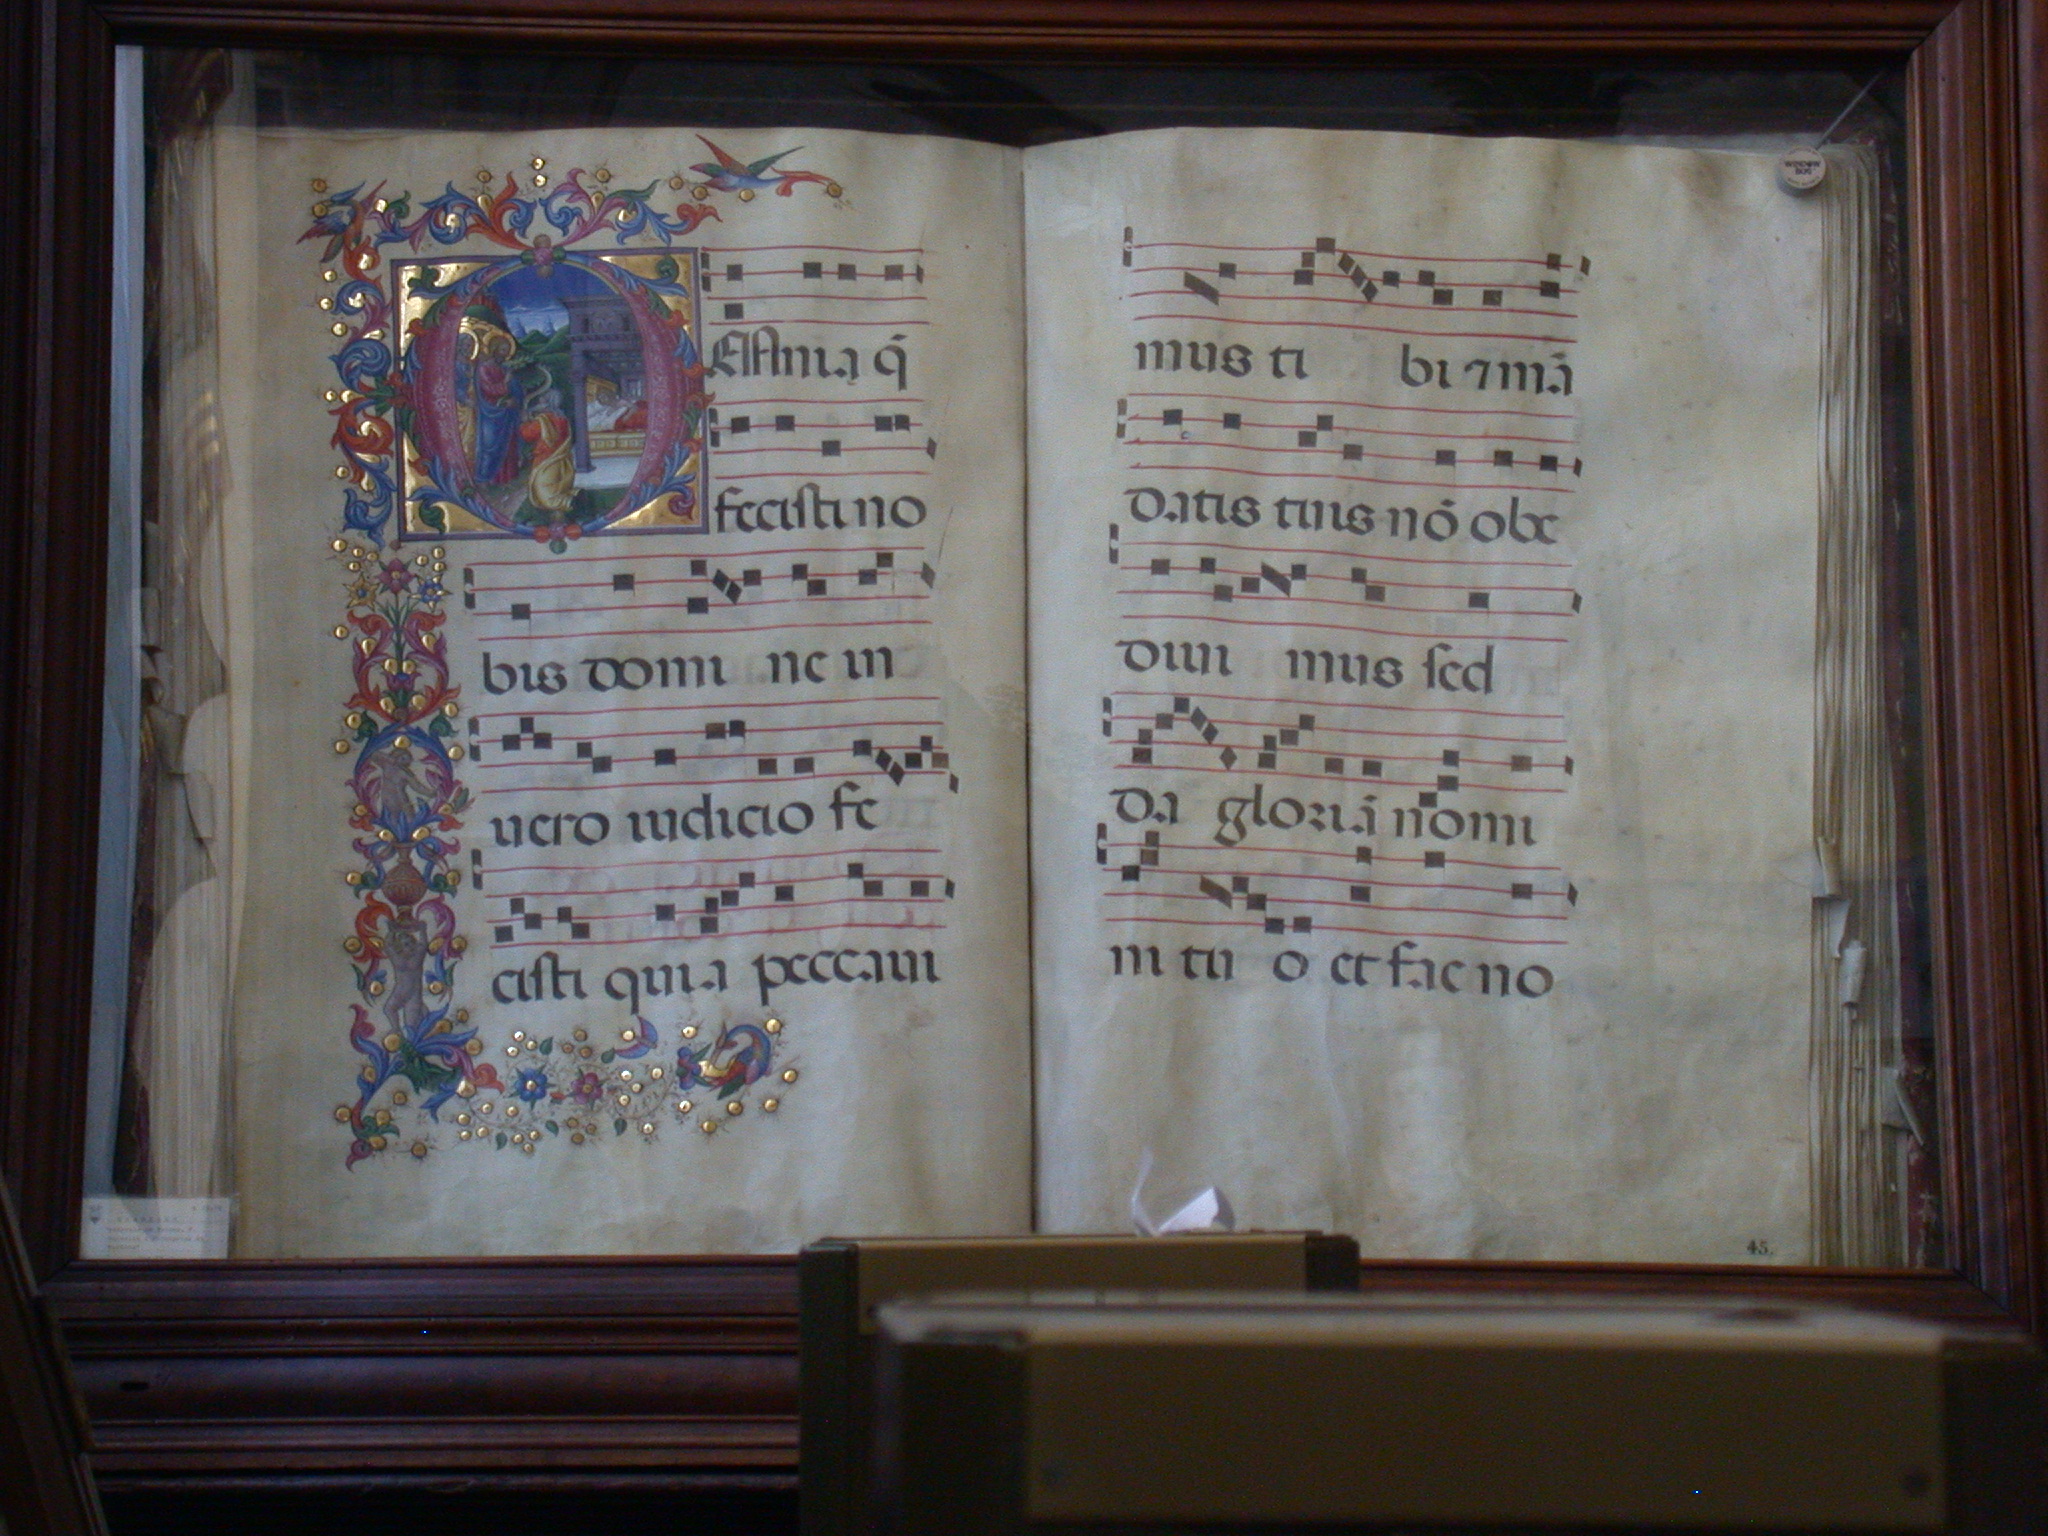 OEmnia q̄
fecisti no
bis domi ne in
uero iudicio fe
cisti quia peccaui
mus ti bi ⁊ mā
datis tuis nō obe
diui mus sed
da gloriā nomi
ni tu o et fac no
45.
WINDOW
BUG